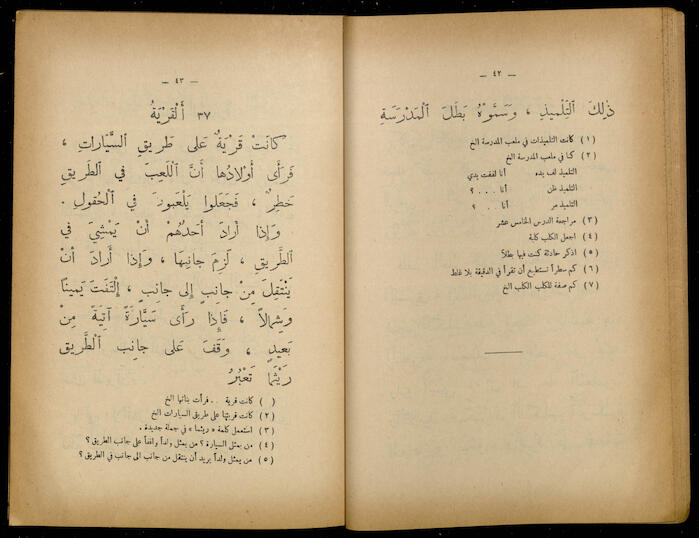 — ٤٢ —
ذٰلِكَ ٱلتِّلْمِيذِ ، وَسَمَّوْهُ بَطَلَ ٱلْمَدْرَسَةِ
(١) كانت التلميذات في ملعب المدرسة الخ
(٢) كنا في ملعب المدرسة الخ
التلميذ لف يده أنا لففت يدي
التلميذ ظن أنا . . . ؟
التلميذ مر أنا . . . ؟
(٣) مراجعة الدرس الخامس عشر
(٤) اجعل الكلب كلبة
(٥) اذكر حادثة كنت فيها بطلاً
(٦) كم سطراً تستطيع أن تقرأ في الدقيقة بلا غلط
(٧) كم صفة للكلب الكلب الخ
— ٤٣ —
٣٧ أَلْقَرْيَةُ
كَانَتْ قَرْيَةٌ عَلَى طَرِيقِ ٱلسَّيَّارَاتِ ،
فَرَأَى أَوْلَادُهَا أَنَّ ٱللَّعِبَ فِي ٱلطَّرِيقِ
خَطِرٌ ، فَجَعَلُوا يَلْعَبُونَ فِي ٱلْحُقُولِ .
وَإِذَا أَرَادَ أَحَدُهُمْ أَنْ يَمْشِيَ فِي
ٱلطَّرِيقِ ، لَزِمَ جَانِبَهَا ، وَإِذَا أَرَادَ أَنْ
يَنْتَقِلَ مِنْ جَانِبٍ إِلَى جَانِبٍ ، إِلْتَفَتَ يَمِينًا
وَشِمَالًا ، فَإِذَا رَأَى سَيَّارَةً آتِيَةً مِنْ
بَعِيدٍ ، وَقَفَ عَلَى جَانِبِ ٱلطَّرِيقِ
رَيْثَمَا تَعْبُرُ
( ) كانت قرية . . فرأت بناتها الخ
(٢) كانت قريتها على طريق السيارات الخ
(٣) استعمل كلمة « ريثما » في جملة جديدة .
(٤) من يمثل السيارة ؟ من يمثل ولداً واقفاً على جانب الطريق ؟
(٥) من يمثل ولداً يريد أن ينتقل من جانب الى جانب في الطريق ؟